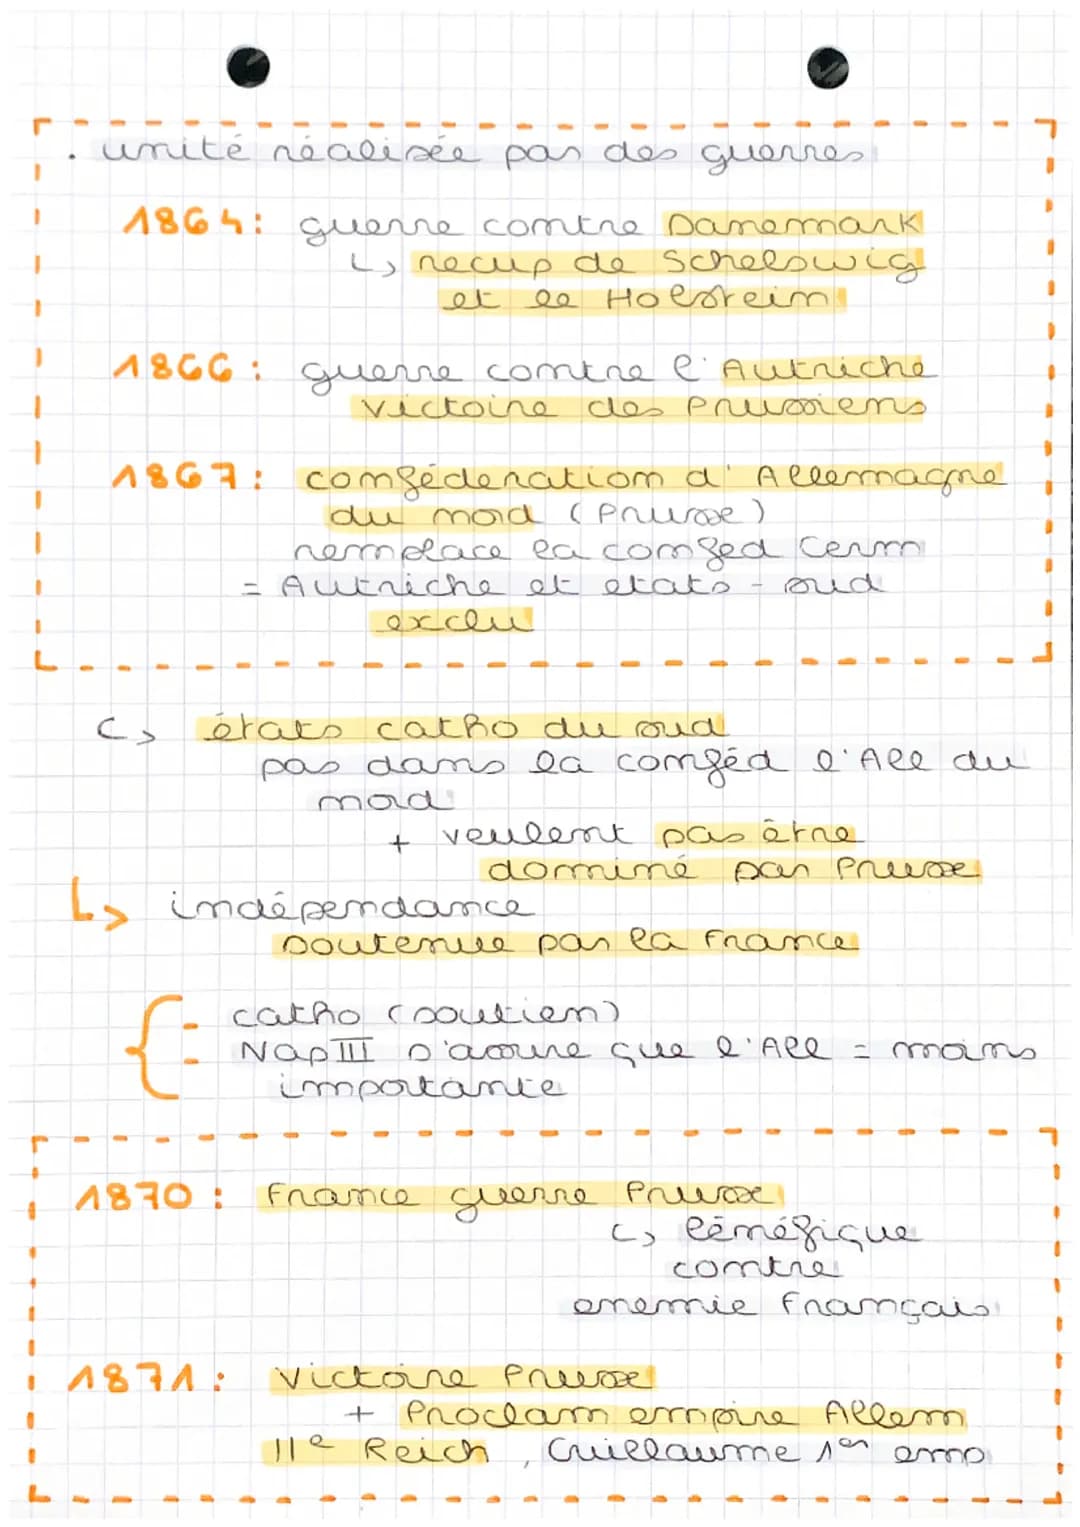 . unité réalisée par des guerres
1864: guerre contre Danemark
↳ recup de Schelswig
et le Holstein
1866: guerre contre l'Autriche
victoire des Prussiens
1867: confédération d'Allemagne
du nord (Prusse)
remplace la confed Germ
= Autriche et etats-sud
exclu
↳ états catho du sud
pas dans la conféd l'All du
nord
+ veulent pas être
dominé par Prusse
↳ indépendance
soutenue par la France
- catho (soutien)
- Nap III s'assure que l'All = moins
importante
1870: France guerre Prusse
↳ bénéfique
contre
enemie Français
1871: Victoire Prusse
+ Proclam empire Allem
IIe Reich, Guillaume 1er emp